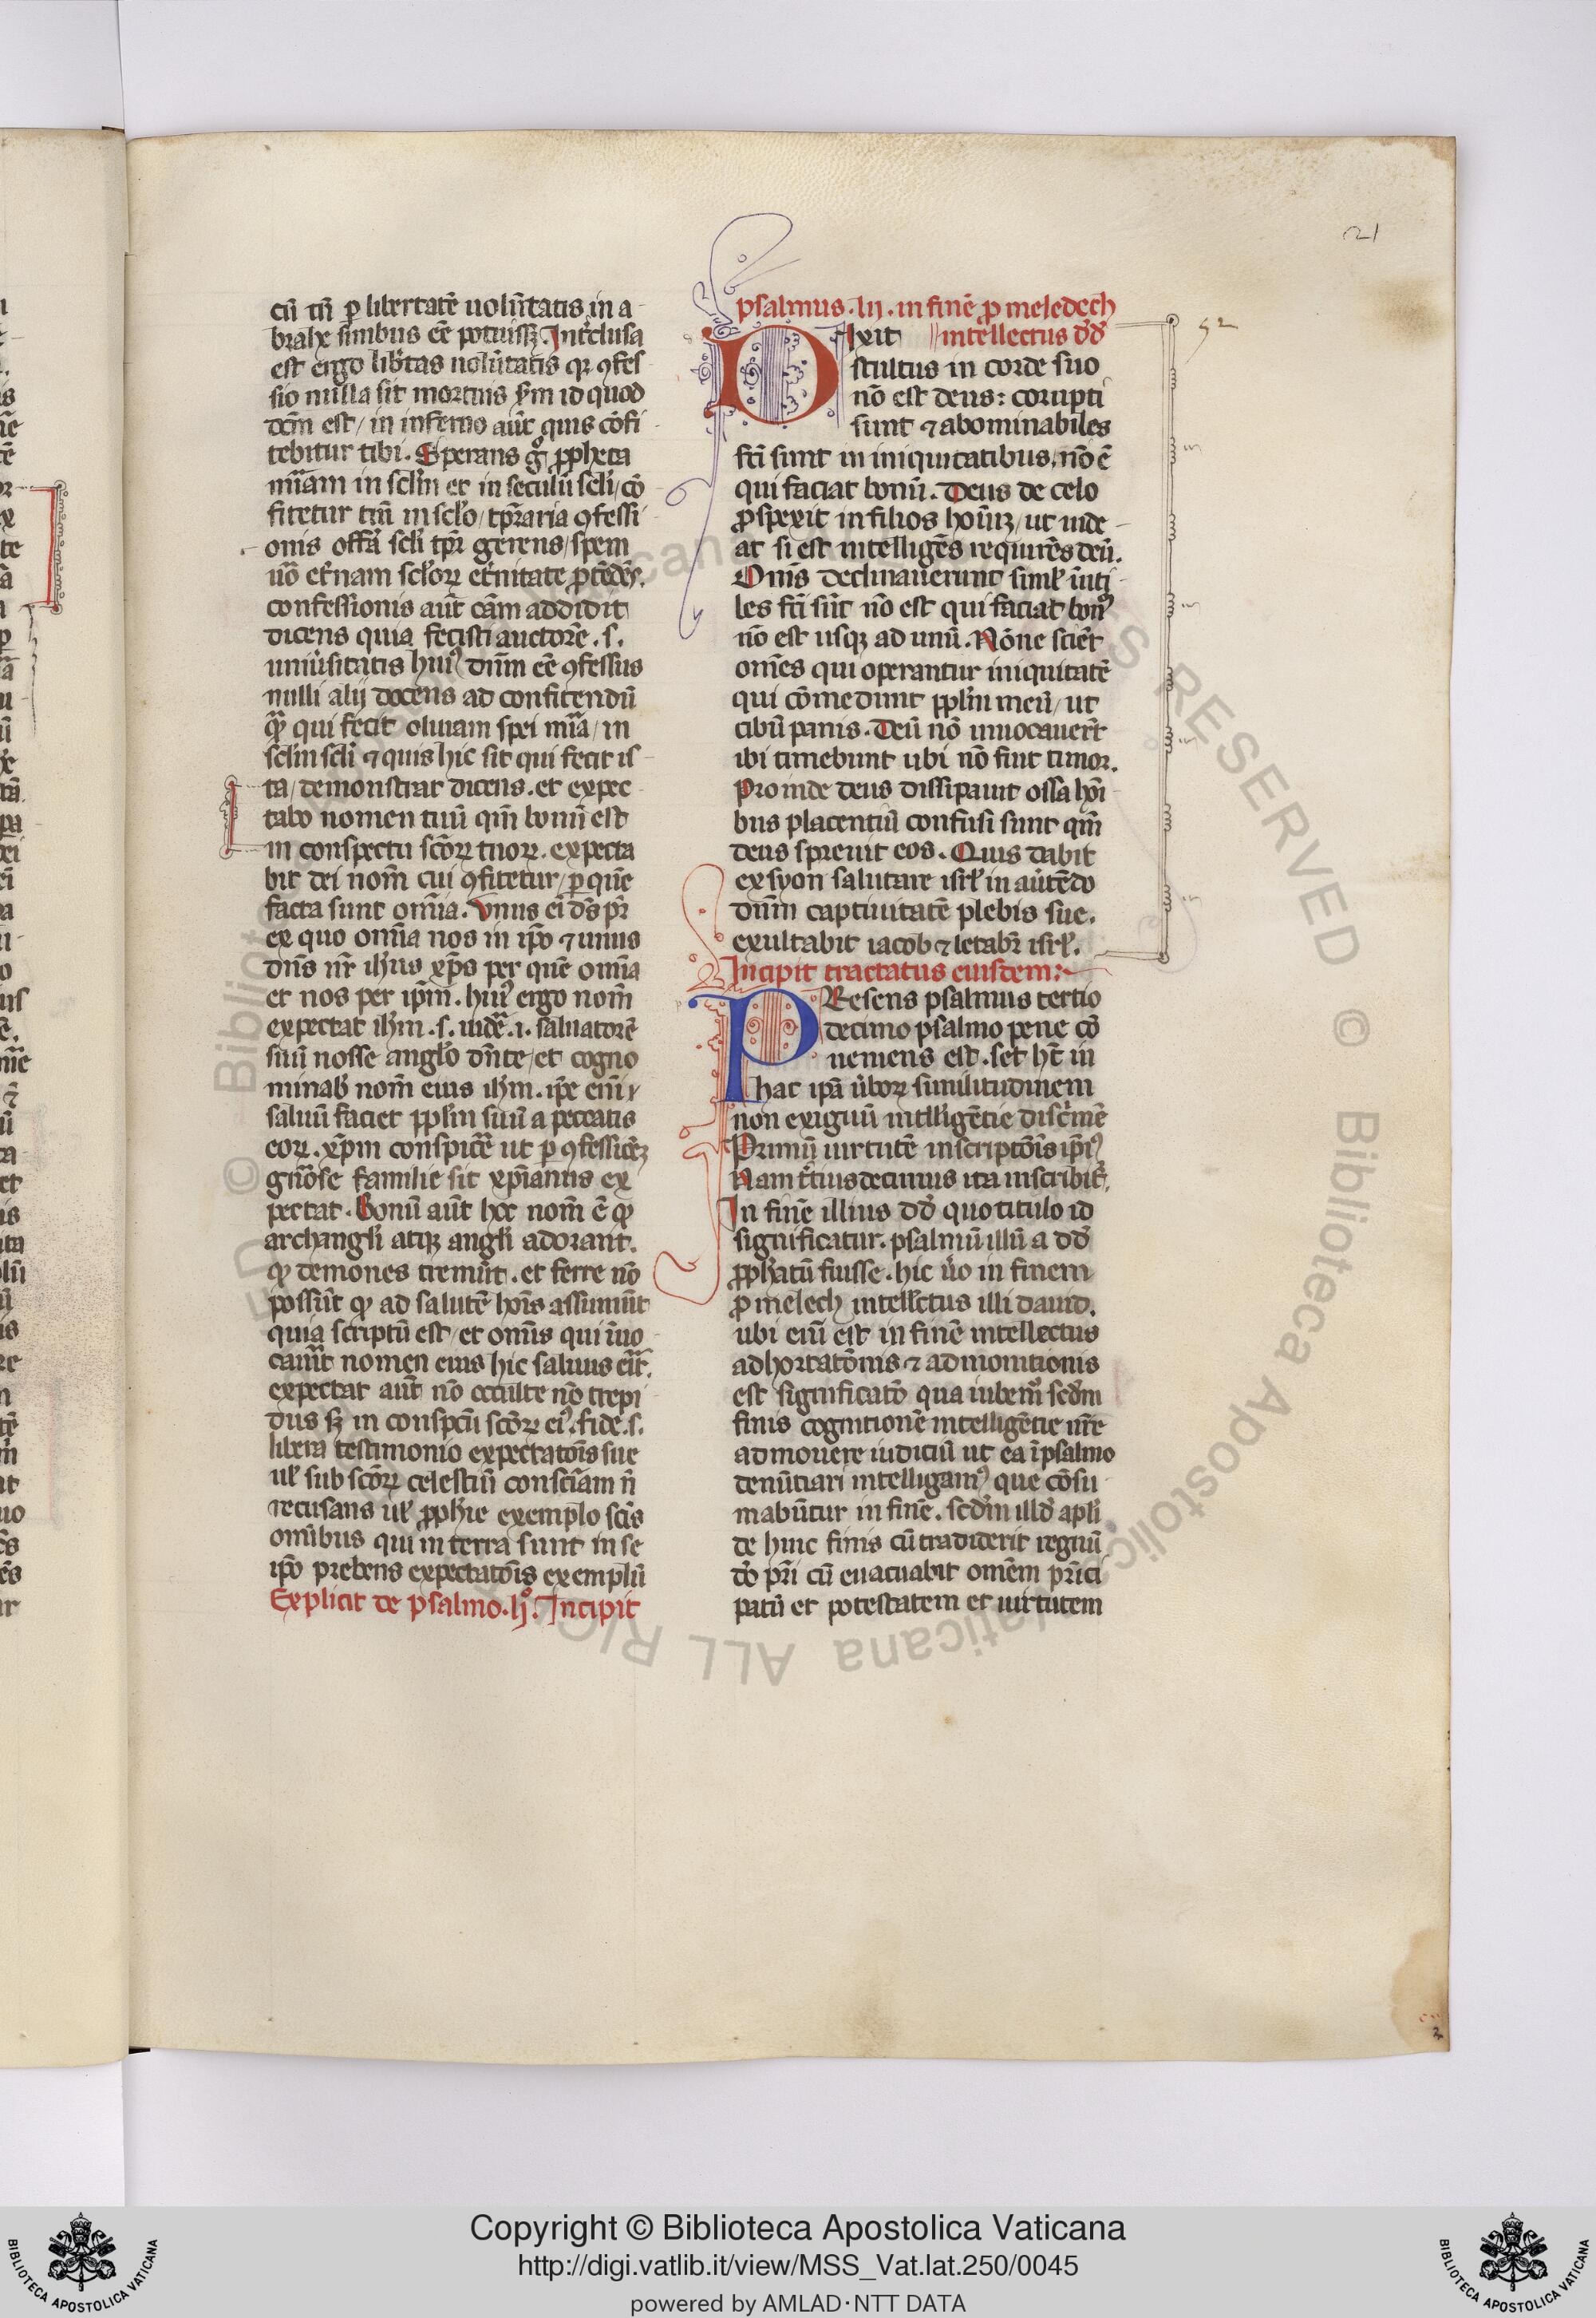 21
cū tn̄ ꝑ libertatē uolūtatis in a
brahe sinibus eē potuissꝫ. Int̄clusa
est ergo lib̄tas uolūtatis qꝛ ꝯfes
sio nulla sit mortuis scd̄m id quod
dc̄m est / in inferno aūt quis cōfi
tebitur tibi. Sperans gͦ ꝓpheta
mīam in sclm̄ et in seculū scli / cō
fitetur tm̄ in sclo / tp̄raria ꝯfessi
onis offā scli tp̄r gerens / spem
uō et̄nam scloꝝ et̄nitate ꝓtēdēs.
confessionis aūt cām addidit
dicens quia fecisti auctorē .s.
uniūsitatis huiꝰ dn̄m eē ꝯfessus
nulli alij docens ad confitendū
qꝫ qui fecit oliuam spei mīa / in
sclm̄ scli ⁊ quis hic sit qui fecit is
ta / demonstrat dicens. et expec
tabo nomen tuū qm̄ bonū est
in conspectu scōꝝ tuoꝝ. expecta
bit dei nom̄ cui ꝯfitetur / ꝑ quē
facta sunt om̄ia. Vnus ei ds̄ pr̄
ex quo om̄ia nos in ip̄o ⁊ unus
dn̄s nr̄ ihūs xp̄s per quē om̄ia
et nos per ip̄m. huiꝰ ergo nom̄
expectat ihm̄ .s. uidē .i. saluatorē
suū nosse anglo dn̄te / et cogno
minab nom̄ eius ihm̄. ip̄e enī
saluū faciet pp̄lm suū a peccatis
eoꝝ. xp̄m conspicē ut ꝑ ꝯfessiōeꝫ
gn̄ose familie sit xp̄ianus ex
pectat. Bonū aūt hoc nom̄ ē qꝫ
archangli atqꝫ angli adorant.
qꝫ demones tremūt. et ferre nō
possūt qꝫ ad salutē hoīs assumūt
quia scriptū est / et omīs qui īuo
cauīt nomen eius hic saluus eīt.
expectat aūt nō occulte nō trepi
dus sꝫ in conspc̄u scōꝝ eiꝰ. fide .s.
libera testimonio expectatōis sue
ul sub scōꝝ celestiū consciam n̄
recusans ul ꝓphie exemplo scīs
omībus qui in terra sunt in se
ip̄o prebens expectatōis exemplū
Explicit de psalmo .lj°. Incipit
psalmus .lij. in finē ꝓ meledech
Dixit intellectus dd̄
52
stultus in corde suo
nō est deus: corupti
sunt ⁊ abominabiles
fc̄i sunt in iniquitatibus. nō ē
qui faciat bonū. Deus de celo
ꝓspexit in filios hoīuꝫ / ut uide
at si est intelligēs requirēs deū.
Omīs declinauerunt siml īuti
les fc̄i sūt nō est qui faciat bonꝰ
nō est usqꝫ ad unū. Nōne sciēt
omēs qui operantur iniquitatē
qui cōmedunt pp̄lm meū / ut
cibū panis. Deū nō inuocauer̄t
ibi timebunt ubi nō fuit timor.
Proinde deus dissipauit ossa hoī
bus placentiū confusi sunt qm̄
deus spreuit eos. Quis dabit
ex syon salutare isrl in aūtēdo
dn̄m captiuitatē plebis sue.
exultabit iacob ⁊ letabr̄ isrl.
Incipit tractatus eiusdem:
PResens psalmus tertio
decimo psalmo pene cō
ueniens est. set hꝫ in
hac ip̄a ūboꝝ similitudinem
non exiguū intlligētie discr̄imē
Primū uirtutē inscriptōis ip̄iꝰ
Nam t̄tius decimus ita inscribit̄.
In finē illius dd̄ quo titulo id
significatur. psalmū illū a dd̄
ꝓph̄atū fuisse. hic ūo in finem
ꝓ melech intellectus illi dauid.
ubi enī est in finē intellectus
adhortatōnis ⁊ admonitionis
est significatō qua iubemꝰ scdm̄
finis cognitionē intelligētie nr̄e
admouere iudiciū ut ea ī psalmo
denūtiari intelligamꝰ que cōsu
mabūtur in finē. scdm̄ illd̄ apli
de hinc finis cū tradiderit regnū
dō pr̄i cū euacuabit omēm prīci
patū et potestatem et uirtutem
Copyright © Biblioteca Apostolica Vaticana
http://digi.vatlib.it/view/MSS_Vat.lat.250/0045
powered by AMLAD·NTT DATA